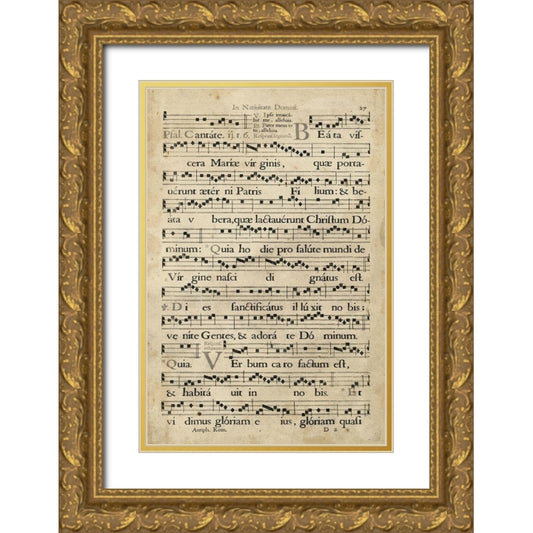 In Nativitate Domini. 27
V. Ipse invocá-
bit me, alleluia.
R. Pater meus es
tu, alleluia.
Psal. Cantáte. ij. t. 6. B Eá ta vis-
cera Mariæ vir ginis, quæ porta-
uérunt ætér ni Patris Fi lium: & be-
áta v bera, quæ lactauérunt Christum Dó-
minum: Quia ho die pro salúte mundi de
Vir gine nasci di gnátus est.
V. Di es sanctificátus il lú xit no bis:
ve níte Gentes, & adorá te Dó minum.
Quia. V Er bum ca ro factum est,
& habitá uit in no bis. Et
vi dimus glóriam e ius, glóriam quasi
Antiph. Rom. D 2